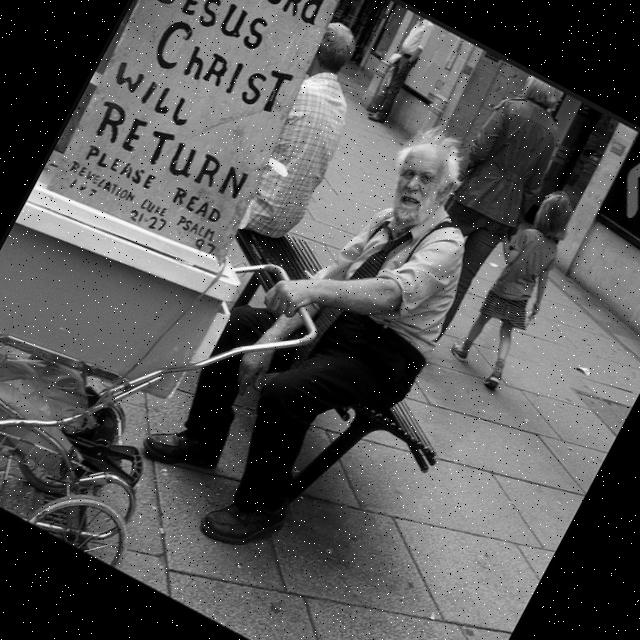 JESUS
CHRIST
WILL
RETURN
PLEASE READ
REVELATION LUKE PSALM
21:27